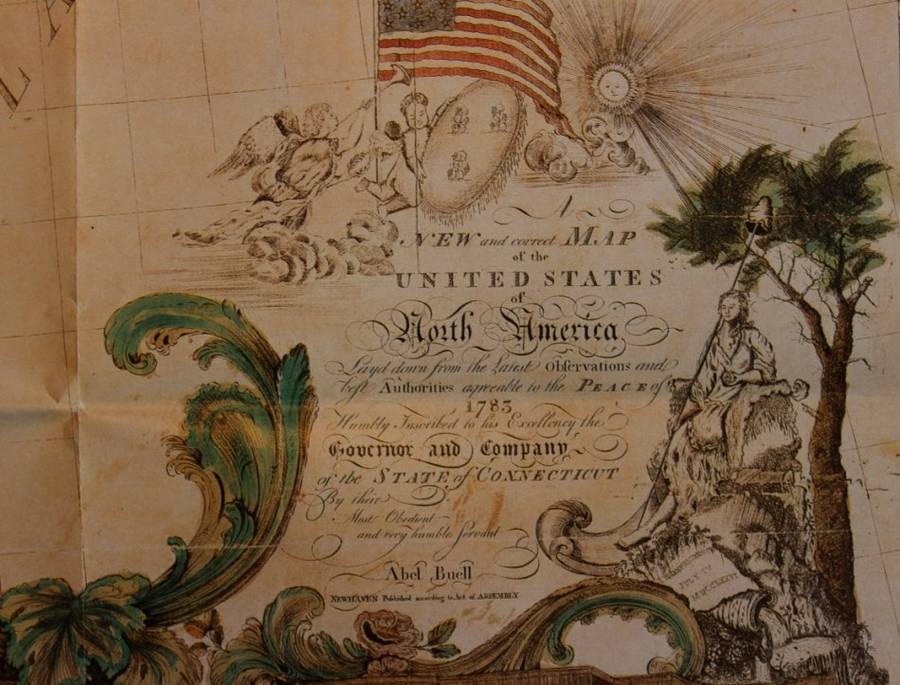 A
NEW and correct MAP
of the
UNITED STATES
of
North America
Layd down from the Latest Observations and
best Authorities agreeable to the PEACE of
1783
Humbly Inscribed to his Excellency the
Governor and Company
of the STATE of CONNECTICUT
By their
Most Obedient
and very humble Servant
Abel Buell
NEWHAVEN Published according to Act of ASSEMBLY
JULY IV
MDCCLXXVI